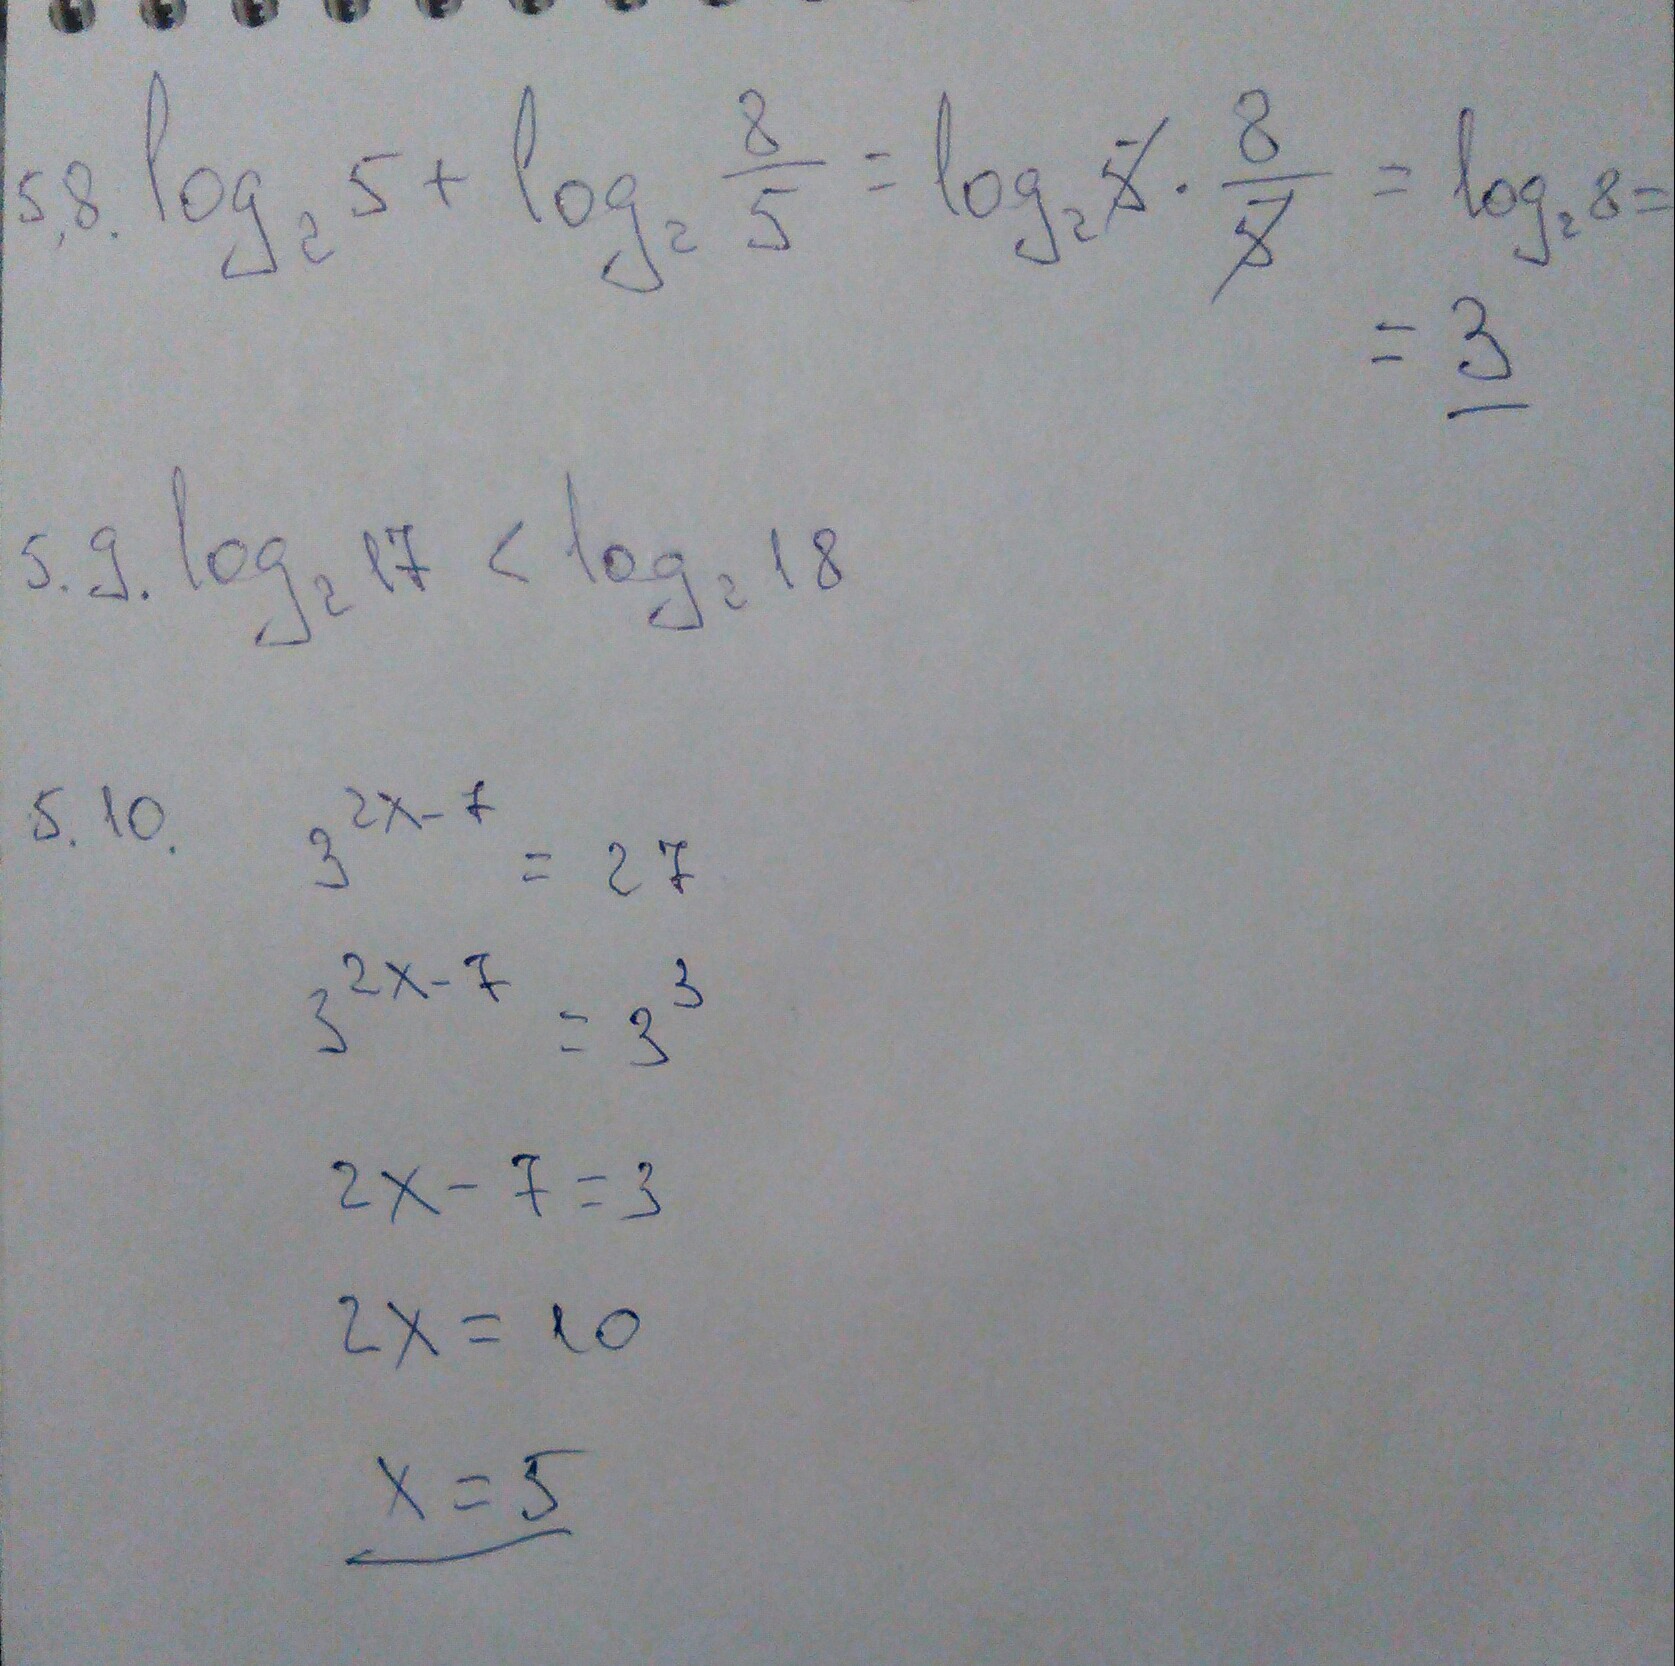 5.8. log₂ 5 + log₂ 8/5 = log₂ 5 · 8/5 = log₂ 8 =
= 3
5.9. log₂ 17 < log₂ 18
5.10. 3^(2x-7) = 27
3^(2x-7) = 3^3
2x - 7 = 3
2x = 10
x = 5